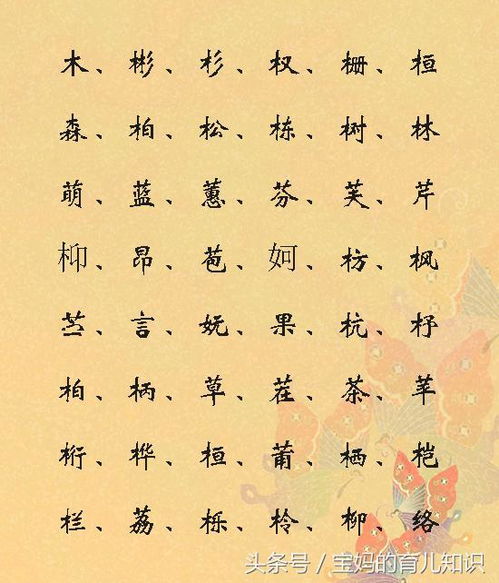 木、彬、杉、权、栅、桓
森、柏、松、栋、树、林
萌、蓝、蕙、芬、芙、芹
枊、昂、苞、妸、枋、枫
苎、言、妩、果、杭、杼
柏、柄、草、茬、茶、苹
桁、桦、桓、莆、栖、桤
栏、荔、栎、柃、柳、络
头条号／宝妈的育儿知识